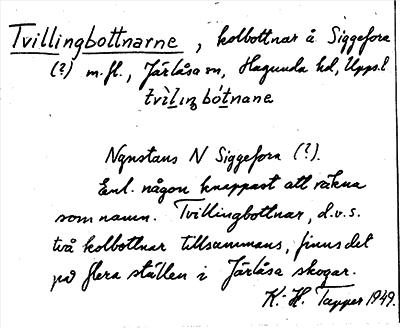 Tvillingbottnarne, kolbottnar å Siggefora
(?) m.fl., Järlåsa sn, Hagunda hd, Upps.l
tvìlıŋbót̄nane
Nynstans N Siggefora (?).
Enl. någon knappast att räkna
som namn. Tvillingbottnar, d.v.s.
två kolbottnar tillsammans, finns det
på flera ställen i Järlåsa skogar.
K.-H. Tapper 1949.